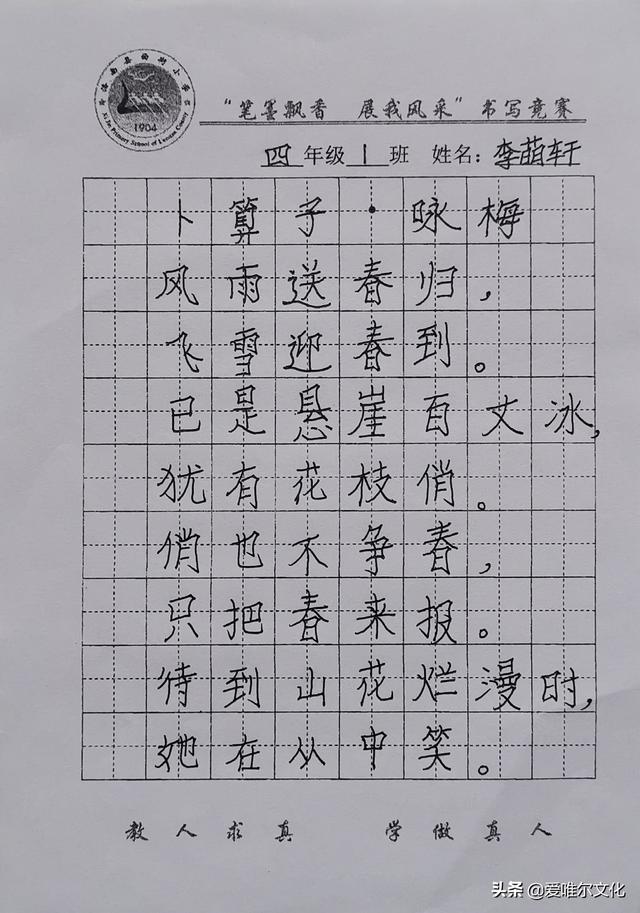 1904
“笔墨飘香 展我风采”书写竞赛
四年级1班 姓名：李萌轩
卜算子·咏梅
风雨送春归，
飞雪迎春到。
已是悬崖百丈冰，
犹有花枝俏。
俏也不争春，
只把春来报。
待到山花烂漫时，
她在从中笑。
教人求真 学做真人
头条 @爱唯尔文化